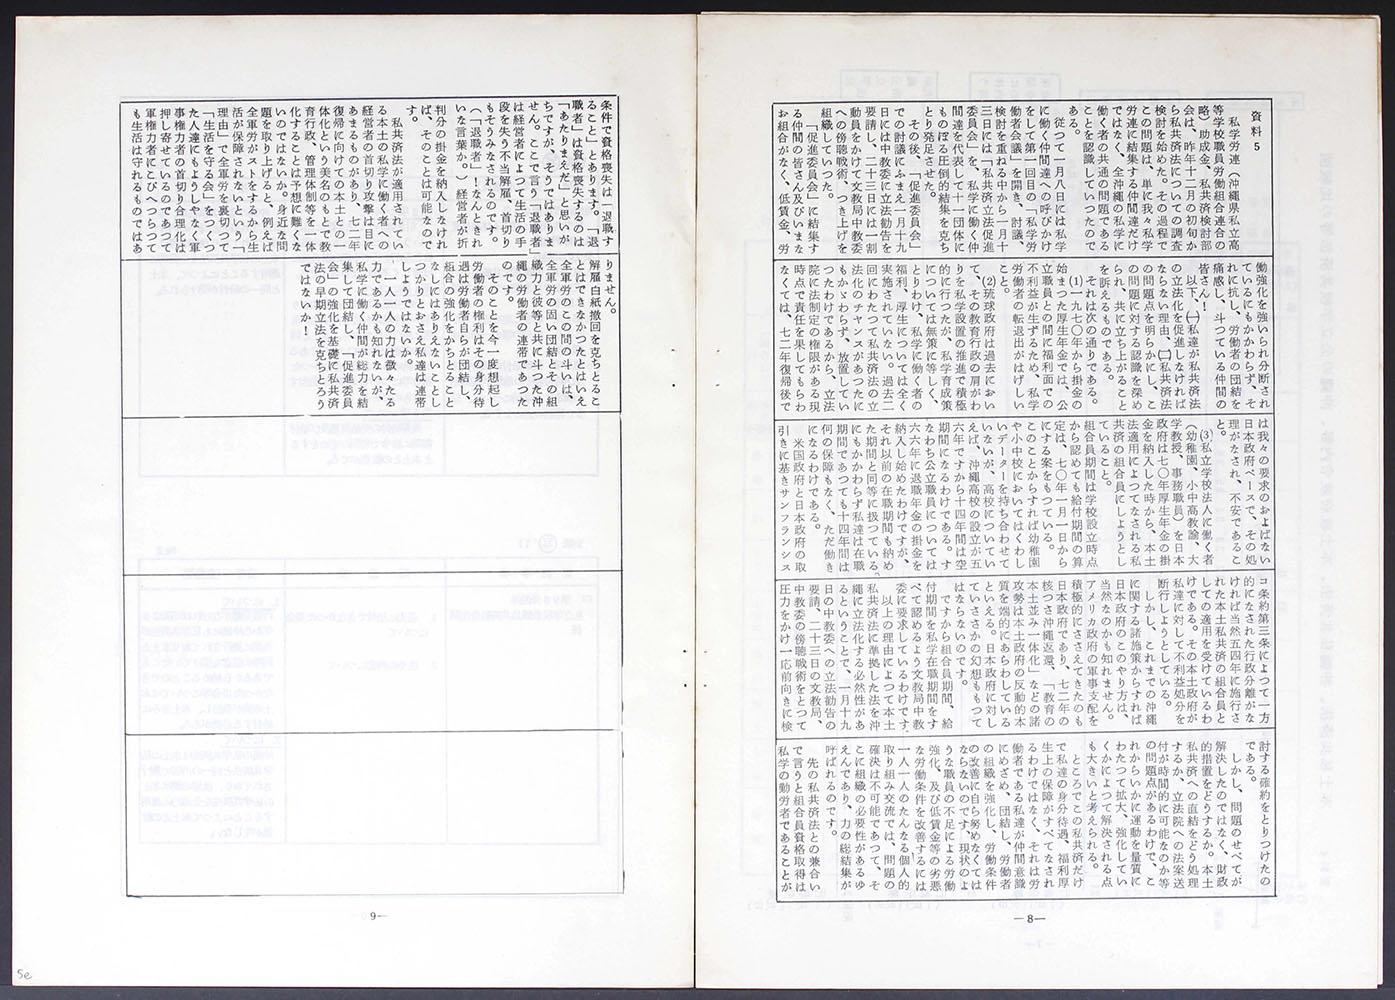 資料5
　私学労連（沖縄県私立高
等学校職員労働組合連合の
略）助成金、私共済検討部
会は、昨年十二月の初旬か
ら私共済法についての調査
検討を始めた。その過程で
この問題は、単に我々私学
労連に結集する仲間達だけ
ではなく、全沖縄の私学に
働く者の共通の問題である
ことを認識していつたので
ある。
　従つて一月八日には私学
に働く仲間達への呼びかけ
をして第一回目の「私学労
働者会議」を開き、討議、
検討を重ねる中から一月十
三日には「私共済立法促進
委員会」を、私学に働く仲
間達を代表して十一団体に
ものぼる圧倒的結集を克ち
とり発足させた。
　その後、「促進委員会」
での討議にふまえ一月十九
日には中教委に立法勧告を
要請し、二十三日には一割
動員をかけて文教局中教委
への傍聴戦術、つき上げを
組織していつた。
　「促進委員会」に結集す
る仲間の皆さん及びいまな
お組合がなく、低賃金、労
働強化を強いられ分断され
ているにもかかわらず、そ
れに抗し、労働者の団結を
痛感し、斗つている仲間の
皆さん！
　以下、㈠私達が私共済法
の立法化を促進しなければ
ならない理由、㈡私共済法
の問題点を明らかにし、こ
の問題に対する認識を深め
られ、共に立ち上がること
を訴えるものである。
　それは次の通りである。
　(1)一九七〇年から掛金の
始まつた厚生年金では、公
立職員との間に福利面での
不利益が生ずるため、私学
労働者の転退出がはげしい
こと。
　(2)琉球政府は過去におい
て、その教育行政の肩がわ
りを私学設置の推進で積極
的に行つたが、私学育成策
については無策に等しく、
とりわけ、私学に働く者の
福利、厚生については全く
実施されていない。過去二
回にわたつて私共済法の立
法化のチャンスがあつたに
もかゝわらず、放置してい
つたわけであるから、立法
院に法制定の権限がある現
時点で責任を果してもらわ
なくては、七二年復帰後で
は我々の要求のおよばない
日本政府ペースで、その処
理がなされ、不安であるこ
と。
　(3)私立学校法人に働く者
（幼稚園、小中高教諭、大
学教授、事務職員）を日本
政府は七〇年厚生年金の掛
金を納入した時から、本土
法適用によつてなされる私
共済の組合員にしようとし
ていること。
　組合員期間は学校設立時点
から認めても給付期間の算
定は、七〇年一月一日から
にする案をもつている。
　このことからすれば幼稚園
や小中校においてはくわし
いデーターを持ち合わせて
いないが、高校についてい
えば、沖縄高校の設立が五
六年ですから十四年間は空
期間になるわけである。す
なわち公立職員については
六六年に退職年金の掛金を
納入し始めたわけですが、
それ以前の在職期間も納め
た期間と同等に扱つている。
にもかかわらず私達は在職
期間であつても十四年間は
何の保障もなく、ただ働き
になるわけである。
　米国政府と日本政府の取
引きに基きサンフランシス
コ条約第三条によつて一方
的になされた行政分離がな
ければ当然五四年に施行さ
れた本土私共済の組合員と
しての適用を受けているわ
けである。その本土政府が
私達に対して不利益処分を
断行しようとしている。
　しかし、これまでの沖縄
に関する諸施策からすれば
日本政府のこのやり方は、
当然なのかも知れません。
アメリカ政府の軍事支配を
積極的にささえてきたのも
日本政府であり、七二年の
核つき沖縄返還、「教育の
本土並み一体化」などの諸
攻勢は本土政府の反動的本
質を端的にあらわしている
といえる。日本政府に対し
ていささかの幻想ももつて
はならないのです。
　ですから組合員期間、給
付期間を私学在職期間をす
べて認めるよう文教局中教
委に要求しているわけです。
　以上の理由によつて本土
私共済法に準拠した法を沖
縄に立法化する必然性があ
るということで、一月十九
日の中教委への立法勧告の
要請、二十三日の文教局、
中教委の傍聴戦術をとつて
圧力をかけ一応前向きに検
討する確約をとりつけたの
である。
　しかし、問題のすべてが
解決したのではなく、財政
的措置をどうするか。本土
私共済への直結をどう処理
するか、立法院への法案送
付が時間的に可能なのか等
の問題点があるわけで、こ
れからいかに運動を量質に
わたつて拡大、強化してい
くかによつて解決される点
も大きいと考えられる。
　ところでこの私共済だけ
で私達の身分待遇、福利厚
生上の保障がすべてなされ
るわけではなく、それは労
働者である私達が仲間意識
にめざめ、団結し、労働者
の組織を強化し、労働条件
の改善に自ら努めなくては
ならないのです。現状のよ
うな職員の不足による労働
強化、及び低賃金等の劣悪
な労働条件を改善するには
一人一人のたんなる個人的
取り組み交流では、問題の
確決は不可能であつて、そ
こに組織の必要性があるゆ
えんであり、力の総結集が
呼ばれるのです。
　先の私共済法との兼合い
で言うと組合員資格取得は
私学の動労者であることが
—8—
条件で資格喪失は一退職す
ること」とあります。「退
職者」は資格喪失するのは
「あたりまえだ」と思いが
ちですが、そうではありま
せん。ここで言う「退職者」
は経営者によつて生活の手
段を失う不当解雇、首切り
もそうみなされるのです。
（「退職者」！なんときれ
いな言葉か。）経営者が折
判分の掛金を納入しなけれ
ば、そのことは可能なので
す。
　私共済法が適用されてい
る本土の私学に働く者への
経営者の首切り攻撃は目に
あまるものがあり、七二年
復帰に向けての本土との一
体化という美名のもとで教
育行政、管理体制等を一体
化することは予想に難くな
いのではないか。身近な問
題を取り上げると、例えば
全軍労がストをするから生
活が保障されないという「
理由」で全軍労を裏切つて
「生活を守る会」をつくつ
た人達にもようしやなく軍
事権力者の首切り合理化は
押し寄せているのであつて
軍権力者にこびへつらつて
も生活は守れるものではあ
りません。
解雇白紙撤回を克ちとるこ
とはできなかつたとはいえ
全軍労のこの間の斗いは、
全軍労の固い団結とその組
織力と彼等と共に斗つた沖
縄の労働者の連帯であつた
のです。
　そのことを今一度想起し
労働者の権利はその身分待
遇は労働者自らが団結し、
組合の強化をかちとること
なしにはありえないことし
つかりとおさえ私達は連帯
しようではないか。
　一人一人の力は微々たる
力であるかも知れないが、
私学に働く仲間が総力を結
集して団結し、「促進委員
会」の強化を基礎に私共済
法の早期立法を克ちとろう
ではないか！
—9—
5e